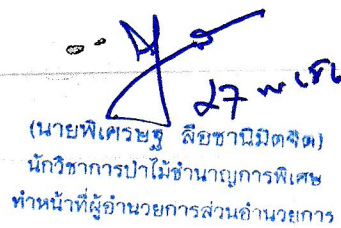 27
(นายพิเศรษฐ ลือชานิมิตจิต)
นักวิชาการป่าไม้ชำนาญการพิเศษ
ทำหน้าที่ผู้อำนวยการส่วนอำนวยการ